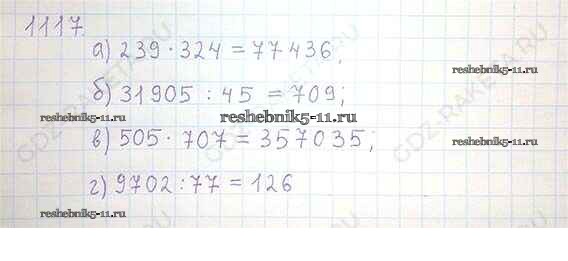 1117.
а) 239 · 324 = 77436;
reshebnik5-11.ru
reshebnik5-11.ru
б) 31905 : 45 = 709;
reshebnik5-11.ru
в) 505 · 707 = 357035;
reshebnik5-11.ru
reshebnik5-11.ru
г) 9702 : 77 = 126
reshebnik5-11.ru
GDZ-RAKETA.RU
GDZ-RAKETA.RU
GDZ-RAKETA.RU